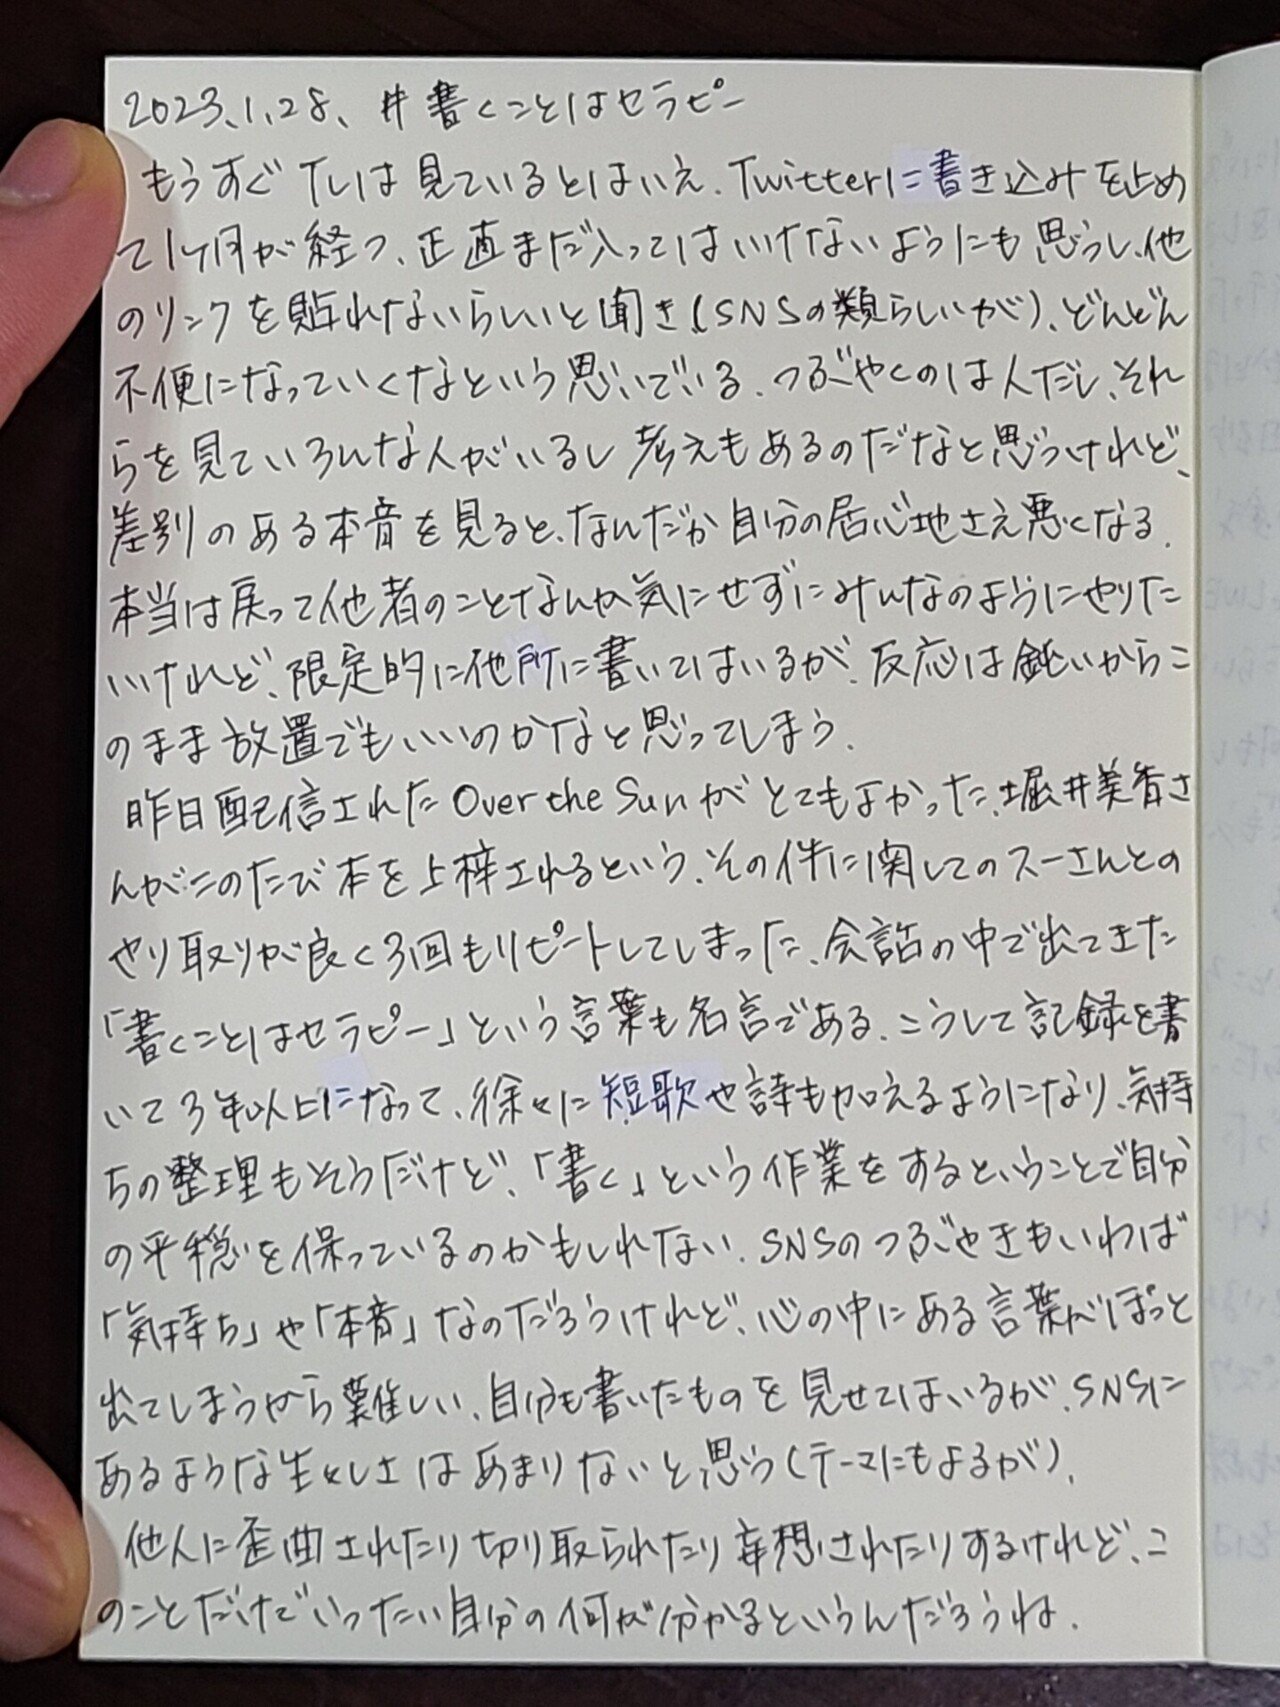 2023、1、28、 #書くことはセラピー
もうすぐTLは見ているとはいえ、Twitterに書き込みを止め
て1ヶ月が経つ、正直まだ入ってはいけないようにも思うし、他
のリンクを貼れないらしいと聞き、(SNSの類らしいが)、どんどん
不便になっていくなという思いでいる、つぶやくのは人だし、それ
らを見ていろんな人がいるし考えもあるのだなと思うけれど、
差別のある本音を見ると、なんだか自分の居心地さえ悪くなる。
本当は戻って他者のことなんか気にせずにみんなのようにやりた
いけれど、限定的に他所に書いてはいるが、反応は鈍いからこ
のまま放置でもいいのかなと思ってしまう。
昨日配信されたOver the Sunがとてもよかった、堀井美香さ
んがこのたび本を上梓されるという、その件に関してのスーさんとの
やり取りが良く3回もリピートしてしまった、会話の中で出てきた
「書くことはセラピー」という言葉も名言である、こうして記録を書
いて3年以上になって、徐々に短歌や詩も加えるようになり、気持
ちの整理もそうだけど、「書く」という作業をするということで自分
の平穏を保っているのかもしれない、SNSのつぶやきもいわば
「気持ち」や「本音」なのだろうけれど、心の中にある言葉がぽっと
出てしまうから難しい、自分も書いたものを見せてはいるが、SNSに
あるような生々しさはあまりないと思う(テーマにもよるが)。
他人に歪曲されたり切り取られたり妄想されたりするけれど、こ
のことだけでいったい自分の何が分かるというんだろうね。